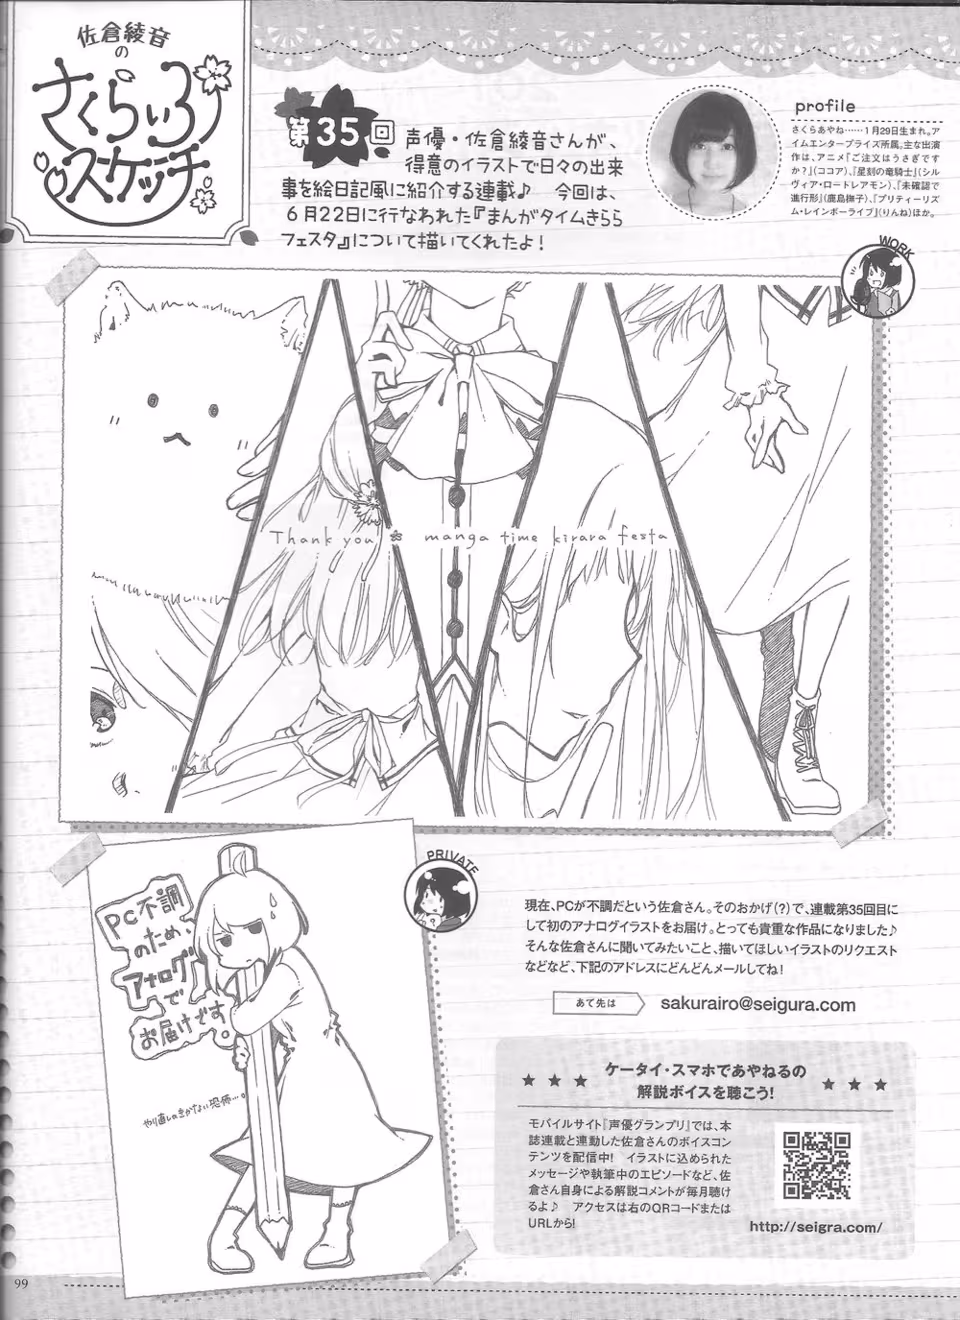 佐倉綾音
の
さくらいろ
スケッチ
第35回
声優・佐倉綾音さんが、
得意のイラストで日々の出来
事を絵日記風に紹介する連載♪　今回は、
6月22日に行なわれた『まんがタイムきらら
フェスタ』について描いてくれたよ！
profile
さくらあやね……1月29日生まれ。ア
イムエンタープライズ所属。主な出演
作は、アニメ『ご注文はうさぎです
か？』(ココア)、『星刻の竜騎士』(シル
ヴィア・ロートレアモン)、『未確認で
進行形』(鹿島撫子)、『プリティーリズ
ム・レインボーライブ』(りんね)ほか。
WORK
Thank you ✿ manga time kirara festa
PRIVATE
PC不調
のため、
アナログ
で
お届けです。
やり直しのきかない恐怖…。
現在、PCが不調だという佐倉さん。そのおかげ(？)で、連載第35回目に
して初のアナログイラストをお届け。とっても貴重な作品になりました♪
そんな佐倉さんに聞いてみたいこと、描いてほしいイラストのリクエスト
などなど、下記のアドレスにどんどんメールしてね！
あて先は
sakurairo@seigura.com
★ ★ ★ ケータイ・スマホであやねるの ★ ★ ★
解説ボイスを聴こう！
モバイルサイト『声優グランプリ』では、本
誌連載と連動した佐倉さんのボイスコン
テンツを配信中！　イラストに込められた
メッセージや執筆中のエピソードなど、佐
倉さん自身による解説コメントが毎月聴け
るよ♪　アクセスは右のQRコードまたは
URLから！
http://seigra.com/
99